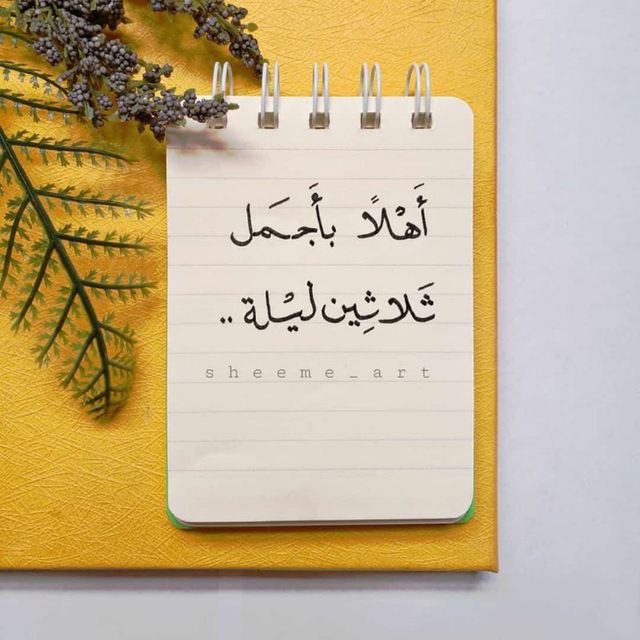 أَهْلًا بأَجـمَـل
ثَلاثِين ليْـلة ..
sheeme_art